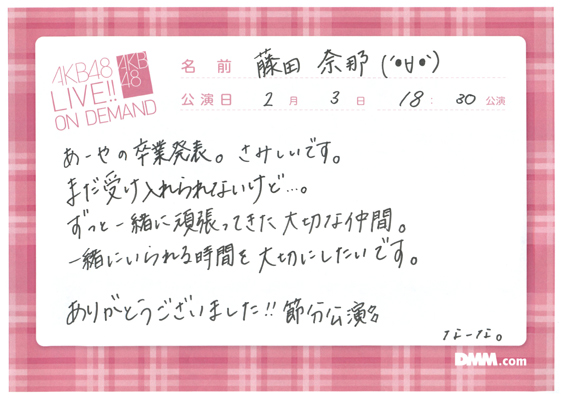 AKB48
LIVE!!
ON DEMAND
AKB
48
名前 藤田 奈那 (´•ㅂ•`)
公演日 2月 3日 18:30公演
あーやの卒業発表。さみしいです。
まだ受け入れられないけど…。
ずっと一緒に頑張ってきた大切な仲間。
一緒にいられる時間を大切にしたいです。
ありがとうございました!! 節分公演
なーな。
DMM.com